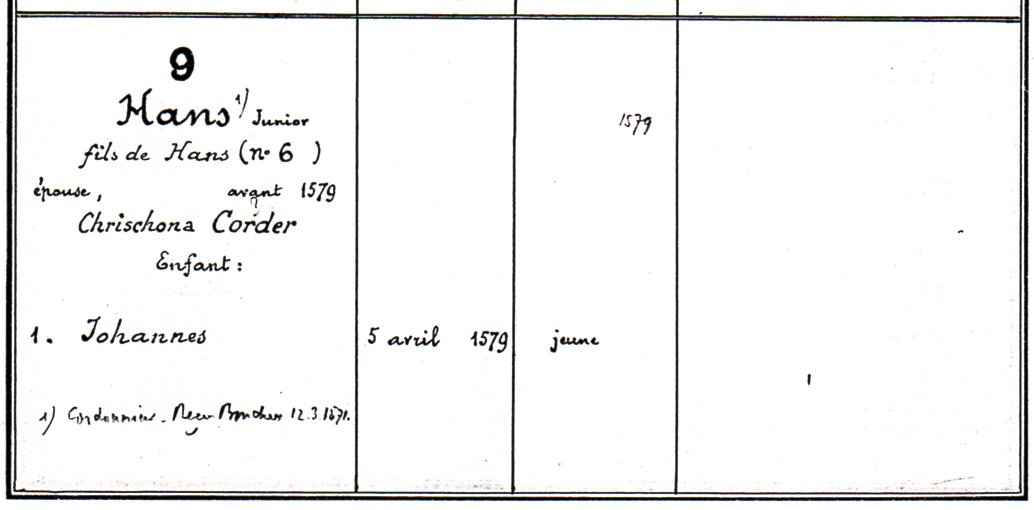 9
Hans 1) Junior
1579
fils de Hans (no 6 )
épouse, avant 1579
?
Chrischona Corder
Enfant :
1. Johannes 5 avril 1579 jeune
1) Cordonnier - Reçu 12.3.1571.